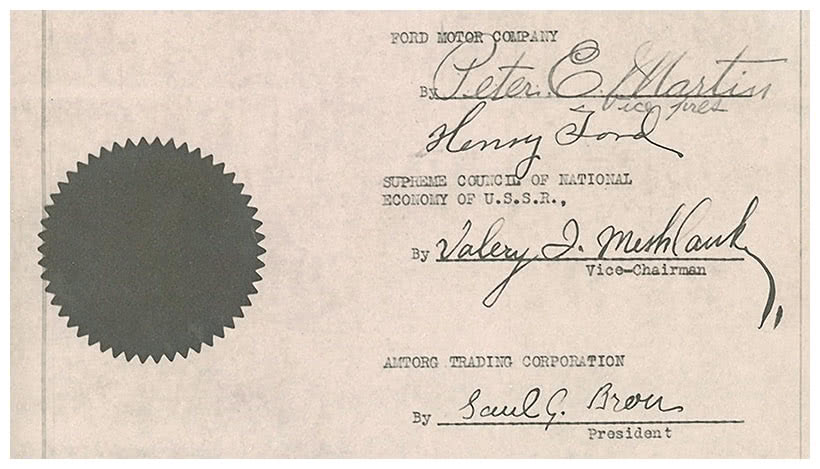 FORD MOTOR COMPANY
By Peter. E. Martin
Vice pres
Henry Ford
SUPREME COUNCIL OF NATIONAL
ECONOMY OF U.S.S.R.,
By Valery I. Meshlauk
Vice-Chairman
AMTORG TRADING CORPORATION
By Saul G. Bron
President